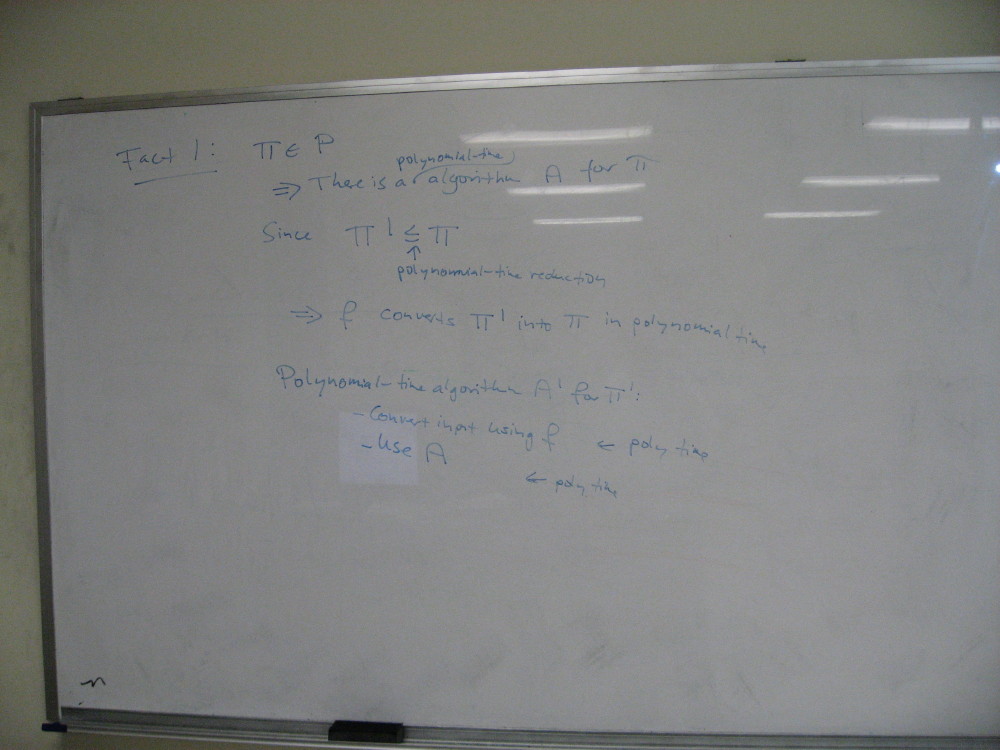 Fact 1: Π ∈ P
polynomial-time
⇒ There is a algorithm A for Π
Since Π' ≤ Π
↑
polynomial-time reduction
⇒ f converts Π' into Π in polynomial time
Polynomial-time algorithm A' for Π':
- Convert input using f ← poly time
- Use A
← poly time